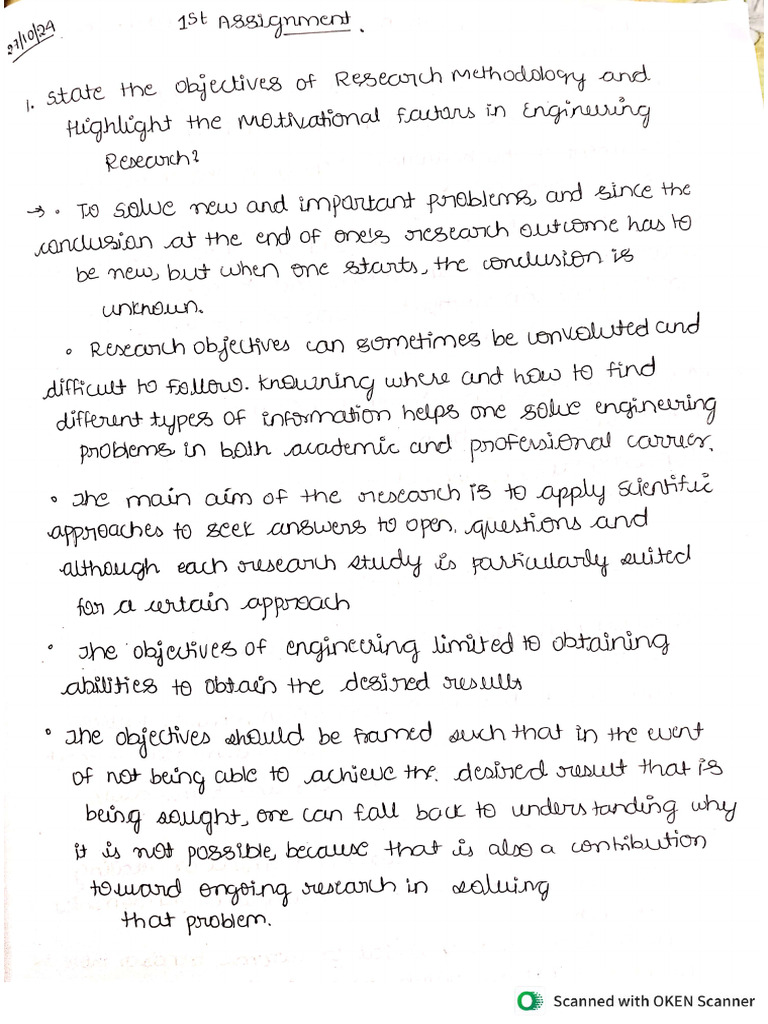 27/10/24
1st Assignment.
1. State the objectives of Research Methodology and
Highlight the Motivational factors in Engineering
Research?
→ • To solve new and important problems, and since the
conclusion at the end of one's research outcome has to
be new, but when one starts, the conclusion is
unknown.
• Research objectives can sometimes be convoluted and
difficult to follow. Knowning where and how to find
different types of information helps one solve engineering
problems in both academic and professional carrier.
• The main aim of the research is to apply scientific
approaches to seek answers to open, questions and
although each research study is particularly suited
for a certain approach
• The objectives of engineering limited to obtaining
abilities to obtain the desired results
• The objectives should be framed such that in the event
of not being able to achieve the. desired result that is
being sought, one can fall back to understanding why
it is not possible, because that is also a contribution
toward ongoing research in solving
that problem.
Scanned with OKEN Scanner